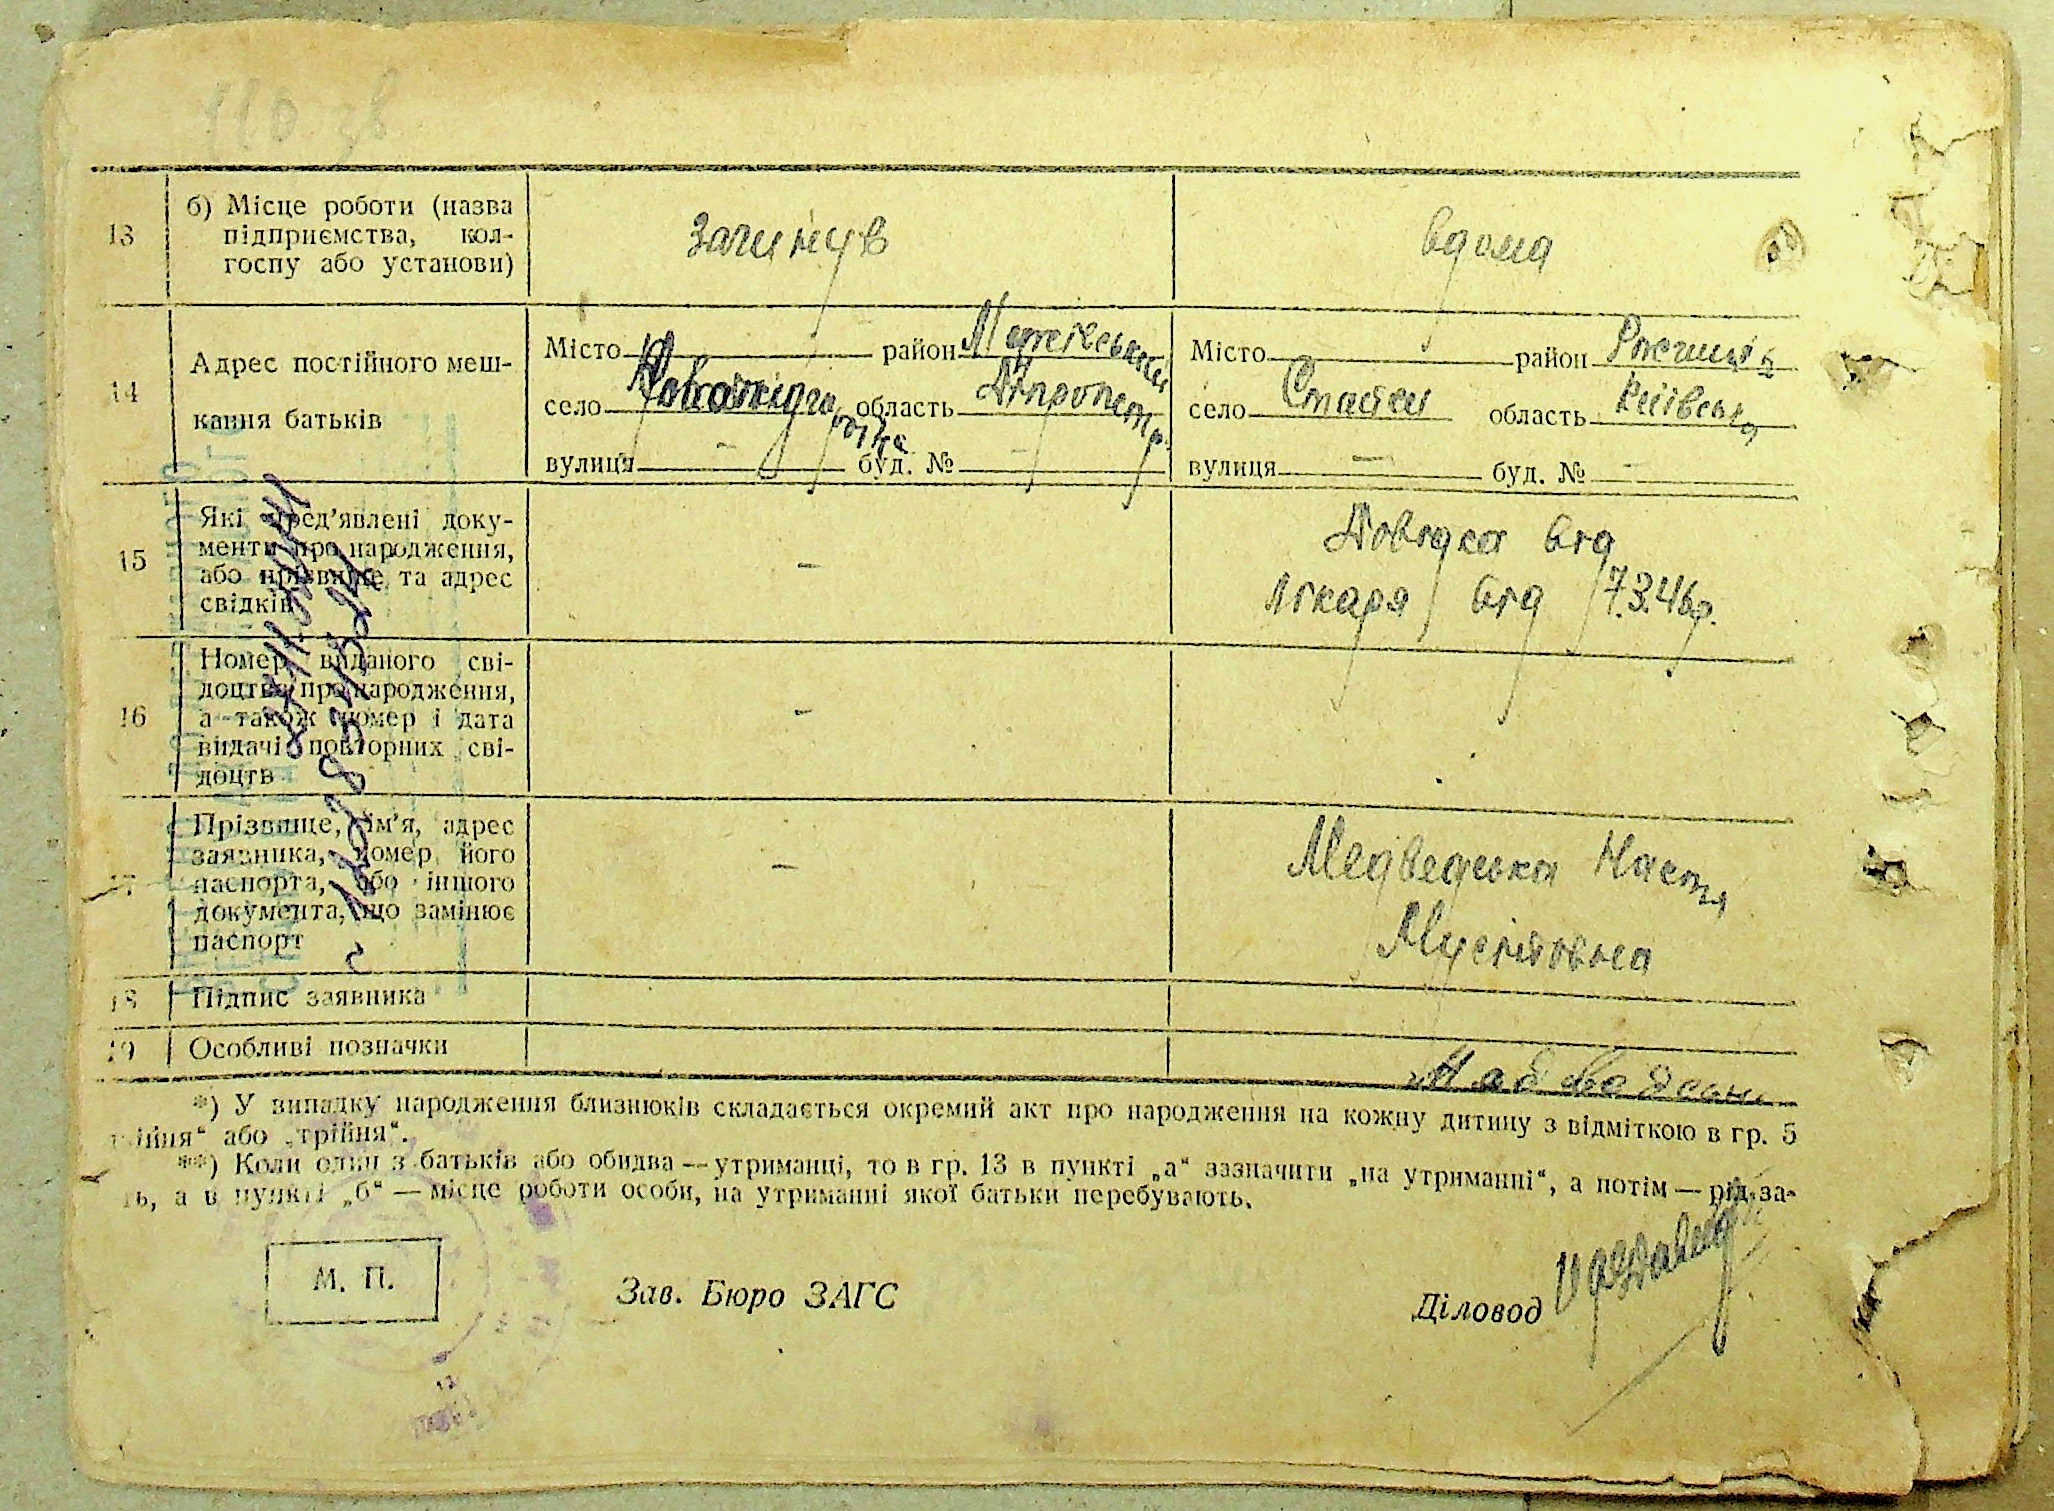 110 зв
13
б) Місце роботи (назва
підприємства, кол-
госпу або установи)
Загинув
вдома
14
Адрес постійного меш-
кання батьків
Місто район Межівський
село область Дніпропетр.
вулиця — буд. № —
Місто район Ржищів
село Стайки область Київська
вулиця — буд. № —
15
Які пред'явлені доку-
менти про народження,
або прізвище та адрес
свідків
—
Довідка від
лікаря від 7.3.46р.
16
Номер виданого сві-
доцтва про народження,
а також номер і дата
видачі повторних сві-
доцтв
—
17
Прізвище, ім'я, адрес
заявника, номер його
паспорта, або іншого
документа, що замінює
паспорт
—
Медведська Настя
18
Підпис заявника
19
Особливі позначки
*) У випадку народження близнюків складається окремий акт про народження на кожну дитину з відміткою в гр. 5
або „трійня“.
**) Коли один з батьків або обидва — утриманці, то в гр. 13 в пункті „а“ зазначити „на утриманні“, а потім — рід за-
ть, а в пункті „б“ — місце роботи особи, на утриманні якої батьки перебувають.
М. П.
Зав. Бюро ЗАГС
Діловод